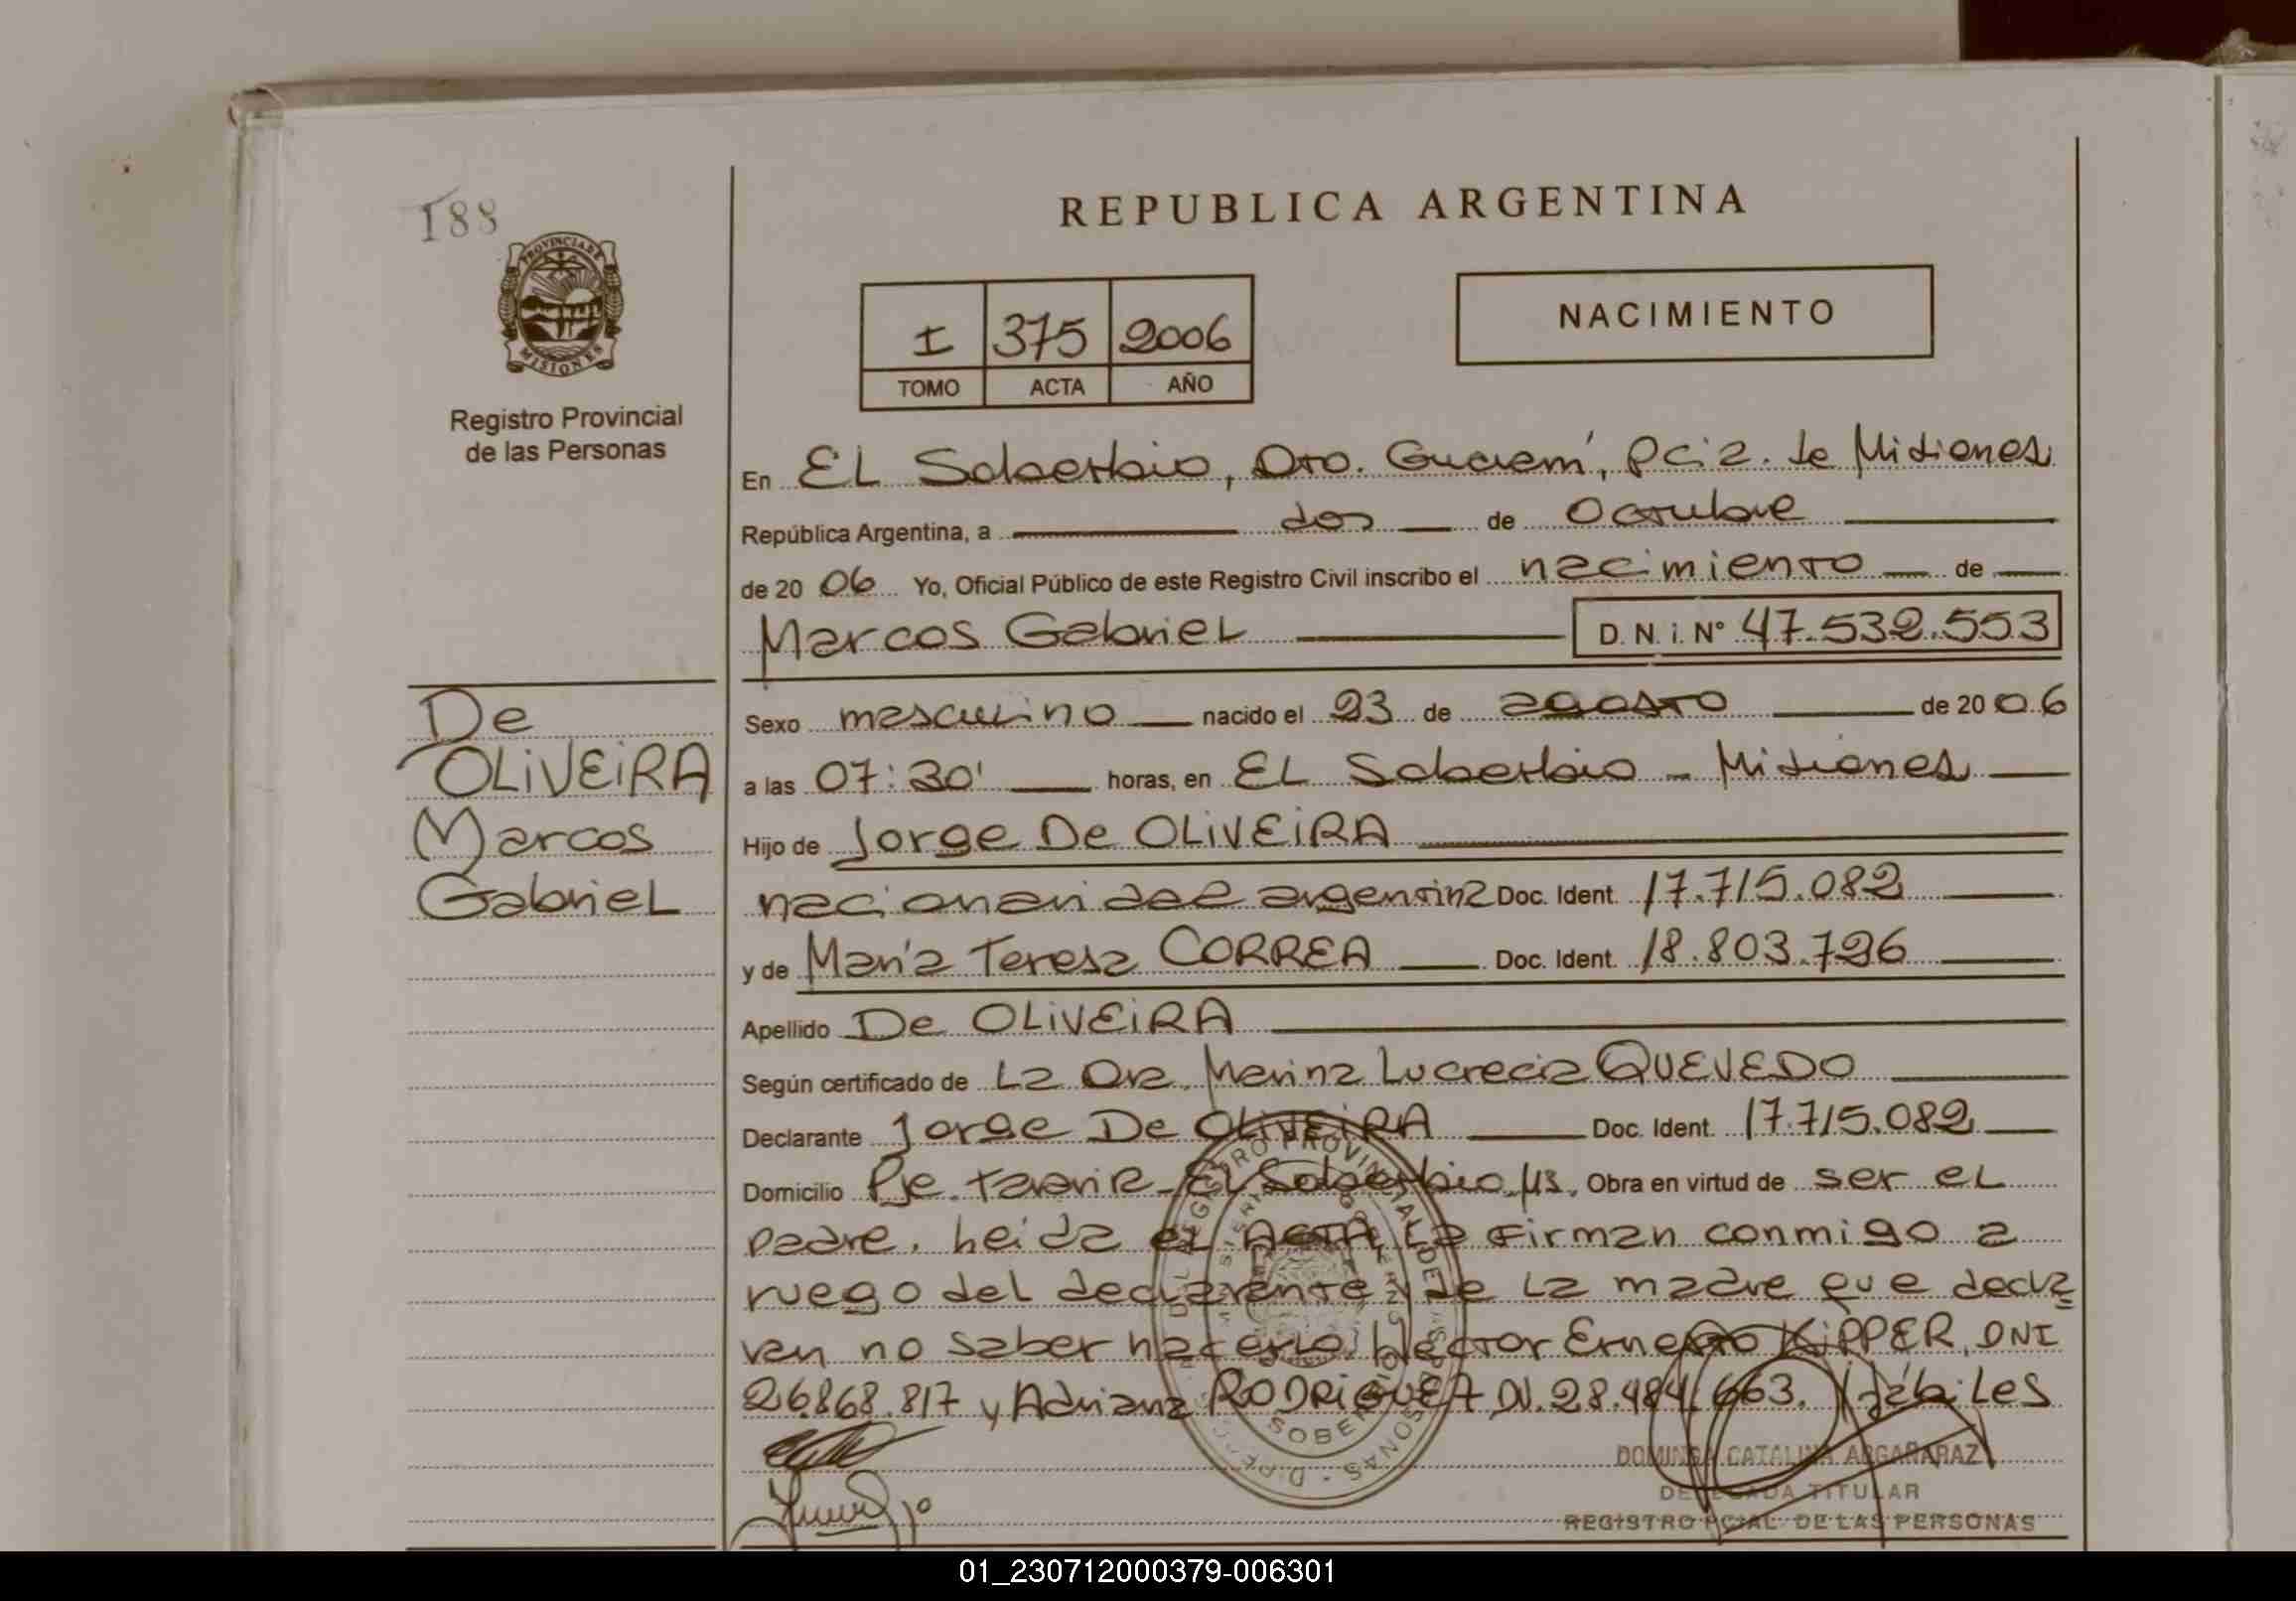 188
PROVINCIA DE
MISIONES
Registro Provincial
de las Personas
REPUBLICA ARGENTINA
I 375 2006
TOMO ACTA AÑO
NACIMIENTO
En EL Soberbio, Dto. Guaraní, Pcia. de Misiones
República Argentina, a dos de Octubre
de 2006 Yo, Oficial Público de este Registro Civil inscribo el nacimiento de
Marcos Gabriel D.N.i.Nº 47.532.553
De
OLiVEiRA
Marcos
Gabriel
Sexo masculino nacido el 23 de agosto de 2006
a las 07:30' horas, en EL Soberbio - Misiones
Hijo de Jorge De OLiVEiRA
nacionalidad argentina Doc. Ident. 17.715.082
y de María Teresa CORREA Doc. Ident. 18.803.796
Apellido De OLiVEiRA
Según certificado de La Dra. Marina Lucrecia QUEVEDO
Declarante Jorge De OLiVEiRA Doc. Ident. 17.715.082
Domicilio Pje. El Soberbio, Ms, Obra en virtud de ser el
padre. Leída el ACTA, La Firman conmigo a
ruego del declarante y de La madre que decla
ran no saber hacerlo: Hector Ernesto KiPPER, DNI
26.868.817 y Adriana RODRIGUEZ DN.28.484.663. Hábiles
DOMINGA CATALINA ARGAÑARAZ
DELEGADA TITULAR
REGISTRO PCIAL. DE LAS PERSONAS
01_230712000379-006301